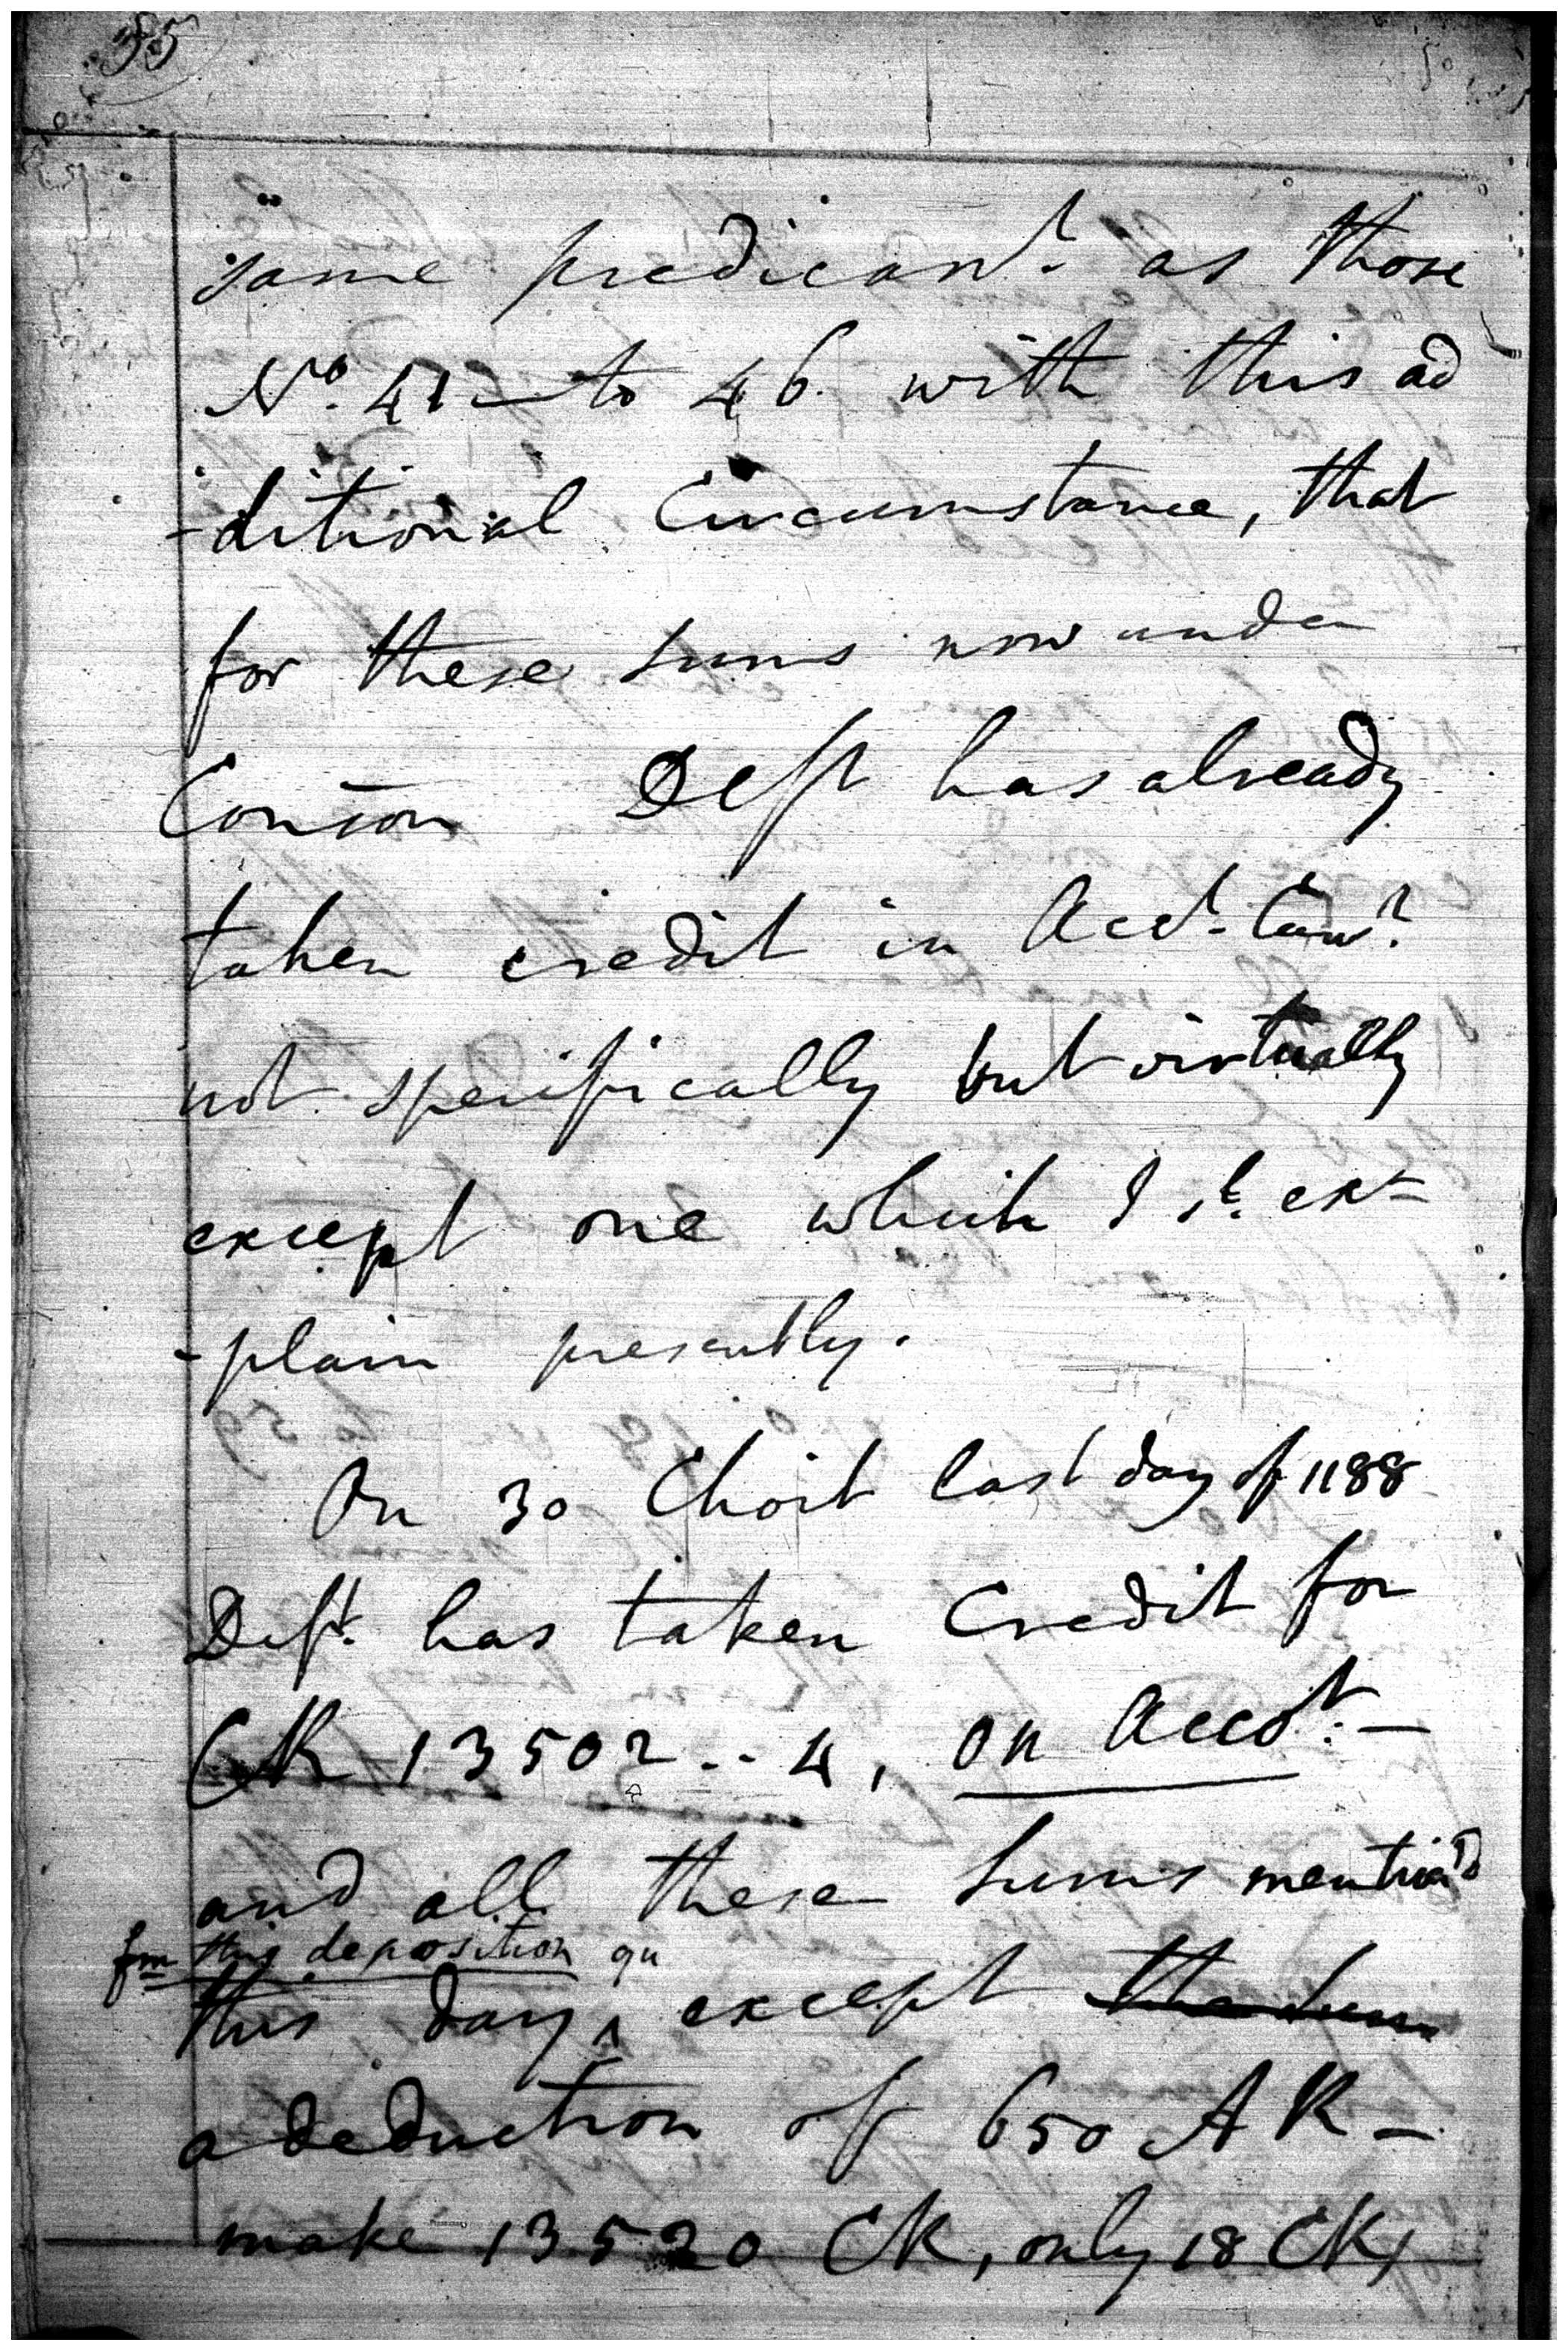 35
same predicamt. as those
No. 41 to 46. with this ad
-ditional Circumstance, that
for these sums now under
Conson Deft has already
taken credit in Acct. Currt.
not specifically but virtually
except one which I sl. ex-
-plain presently.
On 30 Choit last day of 1188
Deft. has taken Credit for
CR 13502 .. 4, on Accot. -
and all these sums mentiond
fm this deposition qu
this day, ^ except the sum
a deduction of 650 AR -
make 13520 CR, only 18 CR,